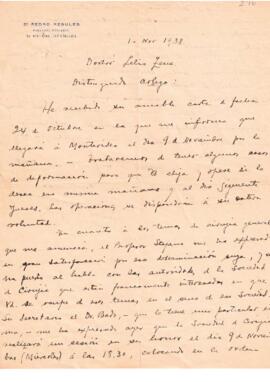 Dr PEDRO REGULES
1 - Nov 1938
Doctor Lelio Zeno
Distinguido colega:
He recibido su amable carta de fecha
24 de octubre en la que me informa que
llegará a Montevideo el dia 9 de Noviembre por la
mañana. - Trataremos de tener algunos casos
de información para que Vd elija y opere si lo
desea esa misma mañana y al dia siguiente
Jueves. Las operaciones se dispondrán a su entera
voluntad.
En cuanto a los temas de cirugía general
que me anuncia, el Profesor me ha expresado
su gran satisfacción por esa determinación suya, y
me puedo al habla con las autoridades de la Sociedad
de Cirugia que están francamente interesados en que
Vd. se ocupe de esos temas en el seno de esa Sociedad.
Su Secretario el Dr. Bado, - que lo tiene en particular
- me ha expresado ayer que la Sociedad de Cirugia
realizará una sesión en su honor el dia 9 de Noviem
bre (Miércoles) á las 18.30, colocando en la orden